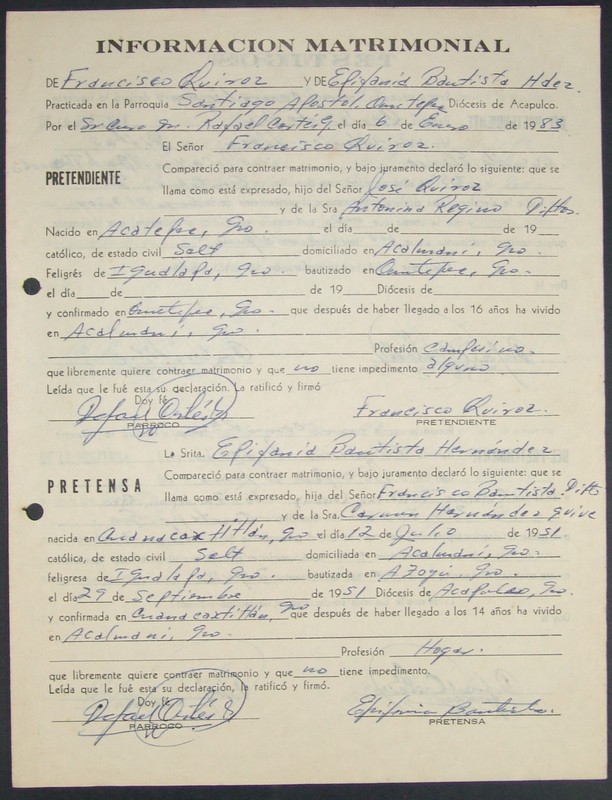 INFORMACION MATRIMONIAL
DE Francisco Quiroz Y DE Epifania Bautista Hdez.
Practicada en la Parroquia Santiago Apostol Ometepec Diócesis de Acapulco.
Por el Sr Cura Dn. Rafael Ortéiz. el día 6 de Enero de 1983.
El Señor Francisco Quiroz.
PRETENDIENTE
Compareció para contraer matrimonio, y bajo juramento declaró lo siguiente: que se
llama como está expresado, hijo del Señor José Quiroz
y de la Sra Antonina Regino Diftos.
Nacido en Acatepec, Gro. el día de de 19
católico, de estado civil Solt domiciliado en Acalmani, Gro.
Feligrés de Igualapa, Gro bautizado en Ometepec, Gro.
el día de de 19 Diócesis de
y confirmado en Ometepec, Gro. que después de haber llegado a los 16 años ha vivido
en Acalmani, Gro.
Profesión Campesino.
que libremente quiere contraer matrimonio y que no tiene impedimento alguno
Leída que le fué esta su declaración. La ratificó y firmó
Doy fé.
PARROCO
Francisco Quiroz.
PRETENDIENTE
La Srita. Epifania Bautista Hernández
PRETENSA
Compareció para contraer matrimonio, y bajo juramento declaró lo siguiente: que se
llama como está expresado, hija del Señor Francisco Bautista. Difto
y de la Sra. Carmen Hernández q vive
nacida en Cuanacaxtitlán, Gro el día 12 de Julio de 1951.
católica, de estado civil Solt domiciliada en Acalmani, Gro.
feligresa de Igualapa, Gro. bautizada en Azoyú Gro.
el día 29 de Septiembre de 1951 Diócesis de Acapulco, Gro.
y confirmada en Cuanacaxtitlán, Gro que después de haber llegado a los 14 años ha vivido
en Acalmani, Gro.
Profesión Hogar.
que libremente quiere contraer matrimonio y que no tiene impedimento.
Leída que le fué esta su declaración, la ratificó y firmó.
Doy fé
PARROCO
Epifania Bautista.
PRETENSA